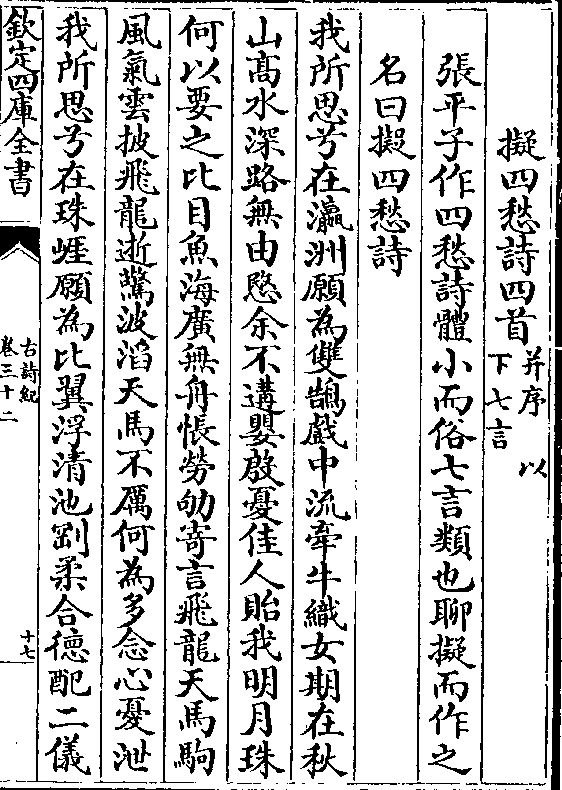 擬四愁詩四首并序 以
下七言
張平子作四愁詩體小而俗七言類也聊擬而作之
名曰擬四愁詩
我所思兮在瀛洲願為雙鵠戲中流牽牛織女期在秋
山髙水深路無由愍余不遘嬰殷憂佳人貽我明月珠
何以要之比目魚海廣無舟悵勞劬寄言飛龍天馬駒
風氣雲披飛龍逝驚波滔天馬不厲何為多念心憂泄
我所思兮在珠崕願為比翼浮清池剛柔合徳配二儀
欽定四庫全書
古詩紀
卷三十二
十七